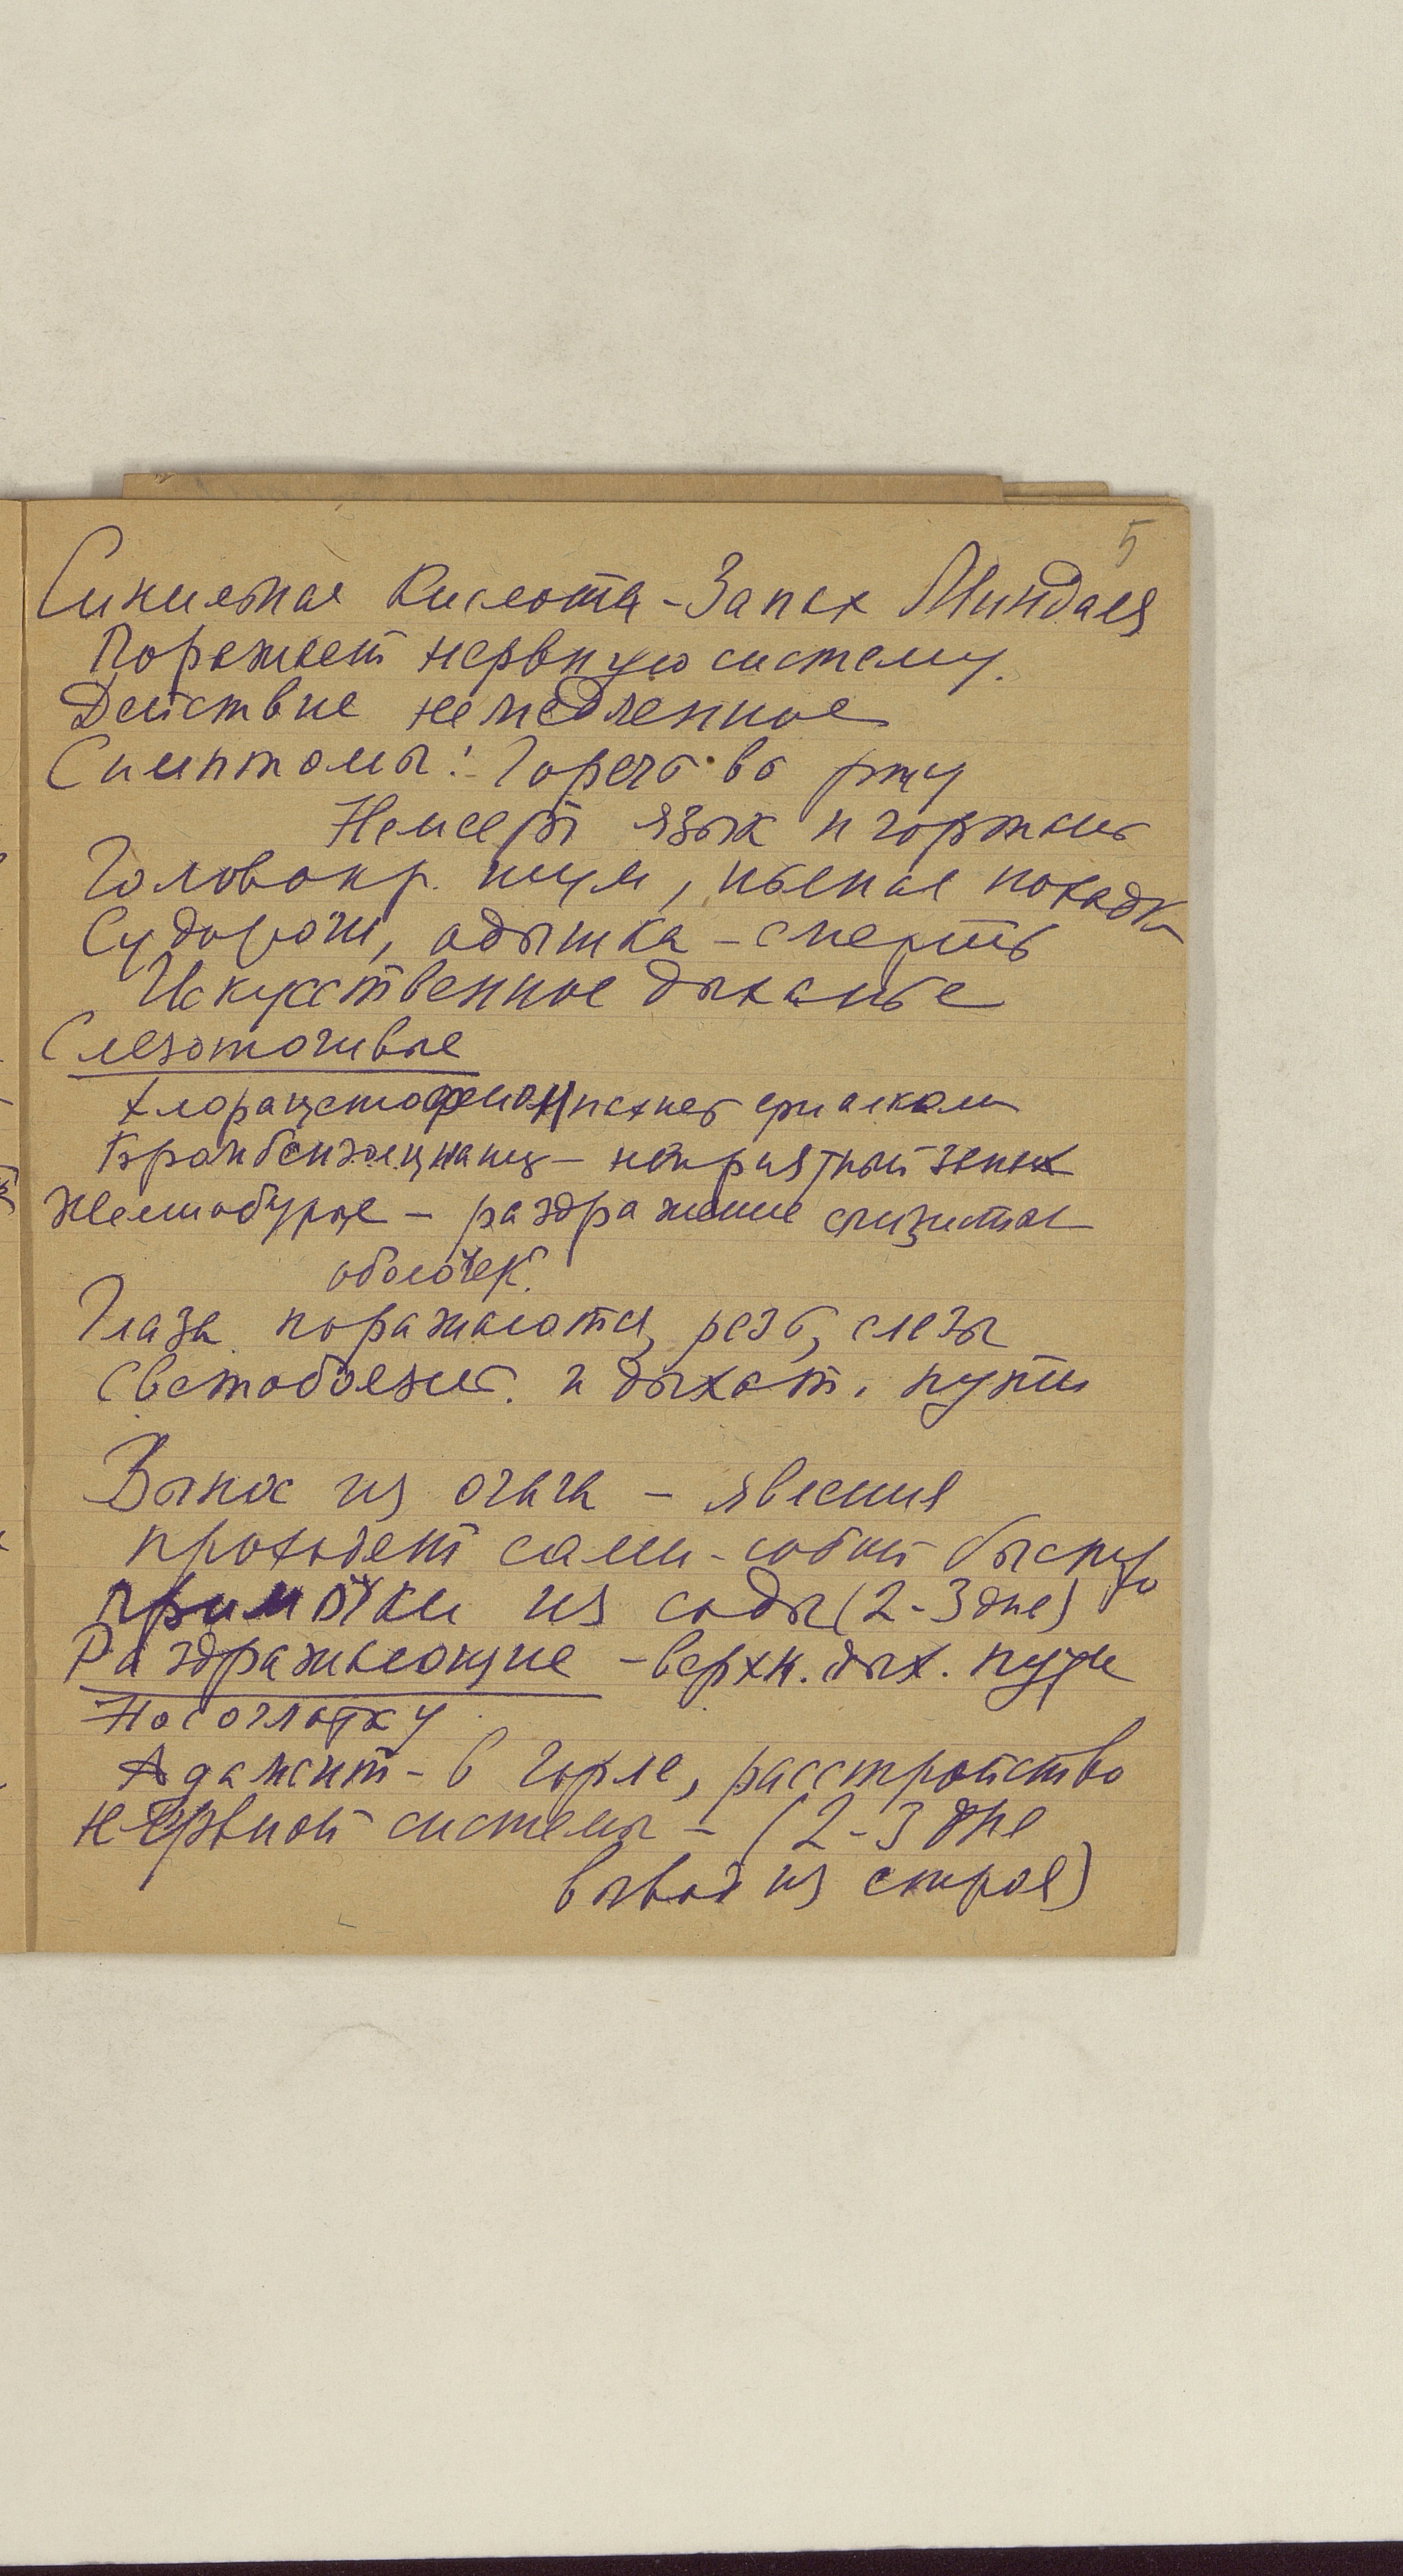 5
Синильная Кислота - Запах Миндаля
Поражает нервную систему.
Действие немедленное
Симптомы: Горечь во рту
Немеет язык и гортань
Головокр. шум, пьяная походка
Судороги, одышка - смерть
Искусственное дыханье
Слезоточивые
хлорацетофенон пахнет фиалками
Бромбензилцианид - неприятный запах
Желтобурые - раздражение слизистых
оболочек.
Глаза поражаются, резь, слезы
Светобоязнь. и дыхат. пути
Вынос из очага - явления
проходят сами-собой быстро
примочки из соды (2-3 дня)
Раздражающие - верхн. дых. пути
Носоглотку
Адамсит - в горле, расстройство
нервной системы - (2-3 дня
вывод из строя)